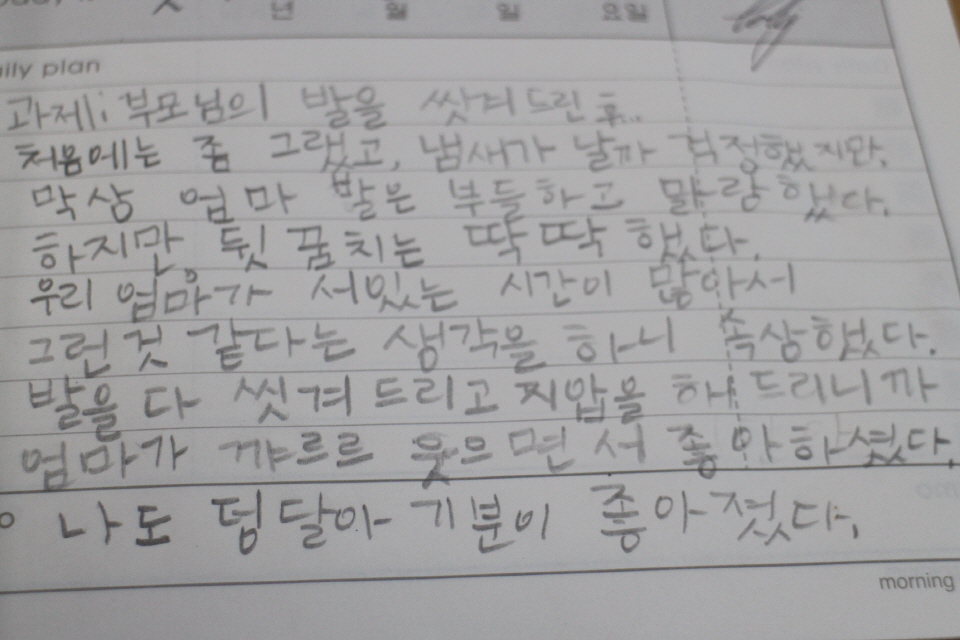 년 월 일 요일
daily plan
과제: 부모님의 발을 쌋겨드린 후..
처음에는 좀 그랬고, 냄새가 날까 걱정했지만,
막상 엄마 발은 부들하고 말랑했다.
하지만, 뒷꿈치는 딱딱했다.
우리 엄마가 서있는 시간이 많아서
그런것 같다는 생각을 하니 속상했다.
발을 다 씻겨드리고 지압을 해드리니까
엄마가 꺄르르 웃으면서 좋아하셨다.
나도 덩달아 기분이 좋아졌다.
morning